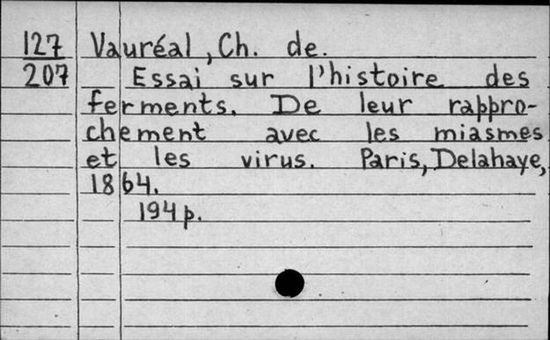 127 Vauréal, Ch. de.
207 Essai sur l'histoire des
ferments. De leur rappro-
chement avec les miasmes
et les virus. Paris, Delahaye,
1864.
194 p.